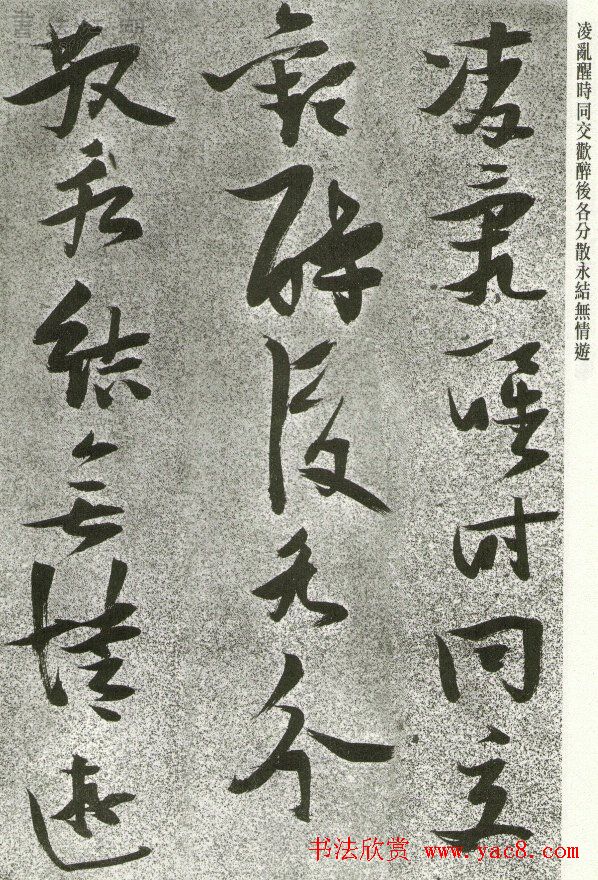 凌亂醒時同交
歡醉後各分
散永結無情遊
凌亂醒時同交歡醉後各分散永結無情遊
书法欣赏 www.yac8.com